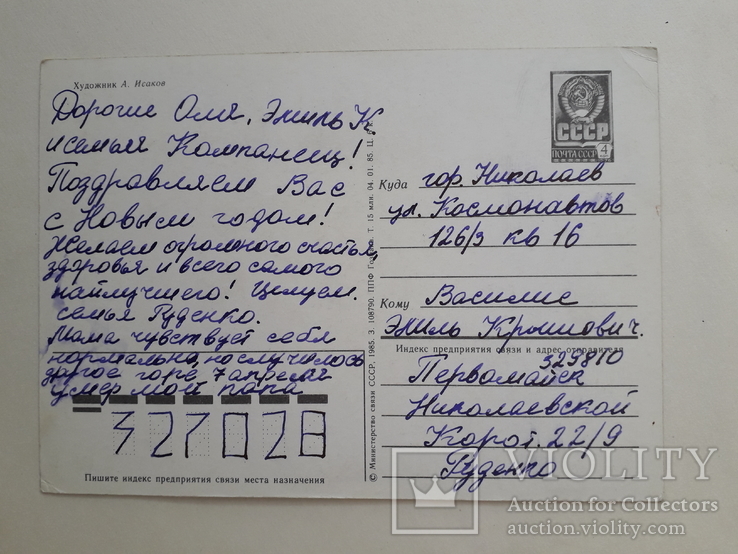 Художник А. Исаков
Дорогие Оля, Эмиль К.
и семья Компанец!
Поздравляем Вас
с Новым годом!
Желаем огромного счастья,
здоровья и всего самого
найлучшего! Целуем.
семья Руденко.
Мама чувствует себя
нормально, но случилось
другое горе 7 апреля
умер мой папа
327028
Пишите индекс предприятия связи места назначения
© Министерство связи СССР, 1985. З. 108790. ППФ Т. 15 млн. 04. 01. 85. Ц.
СССР
ПОЧТА СССР 4
Куда гор. Николаев
ул. Космонавтов
126/3 кв 16
Кому Василис
Эмиль
Индекс предприятия связи и адрес отправителя
329810
Первомайск
Николаевской
Корот. 22/9
Руденко
VIOLITY
Auction for Collectors
auction.violity.com